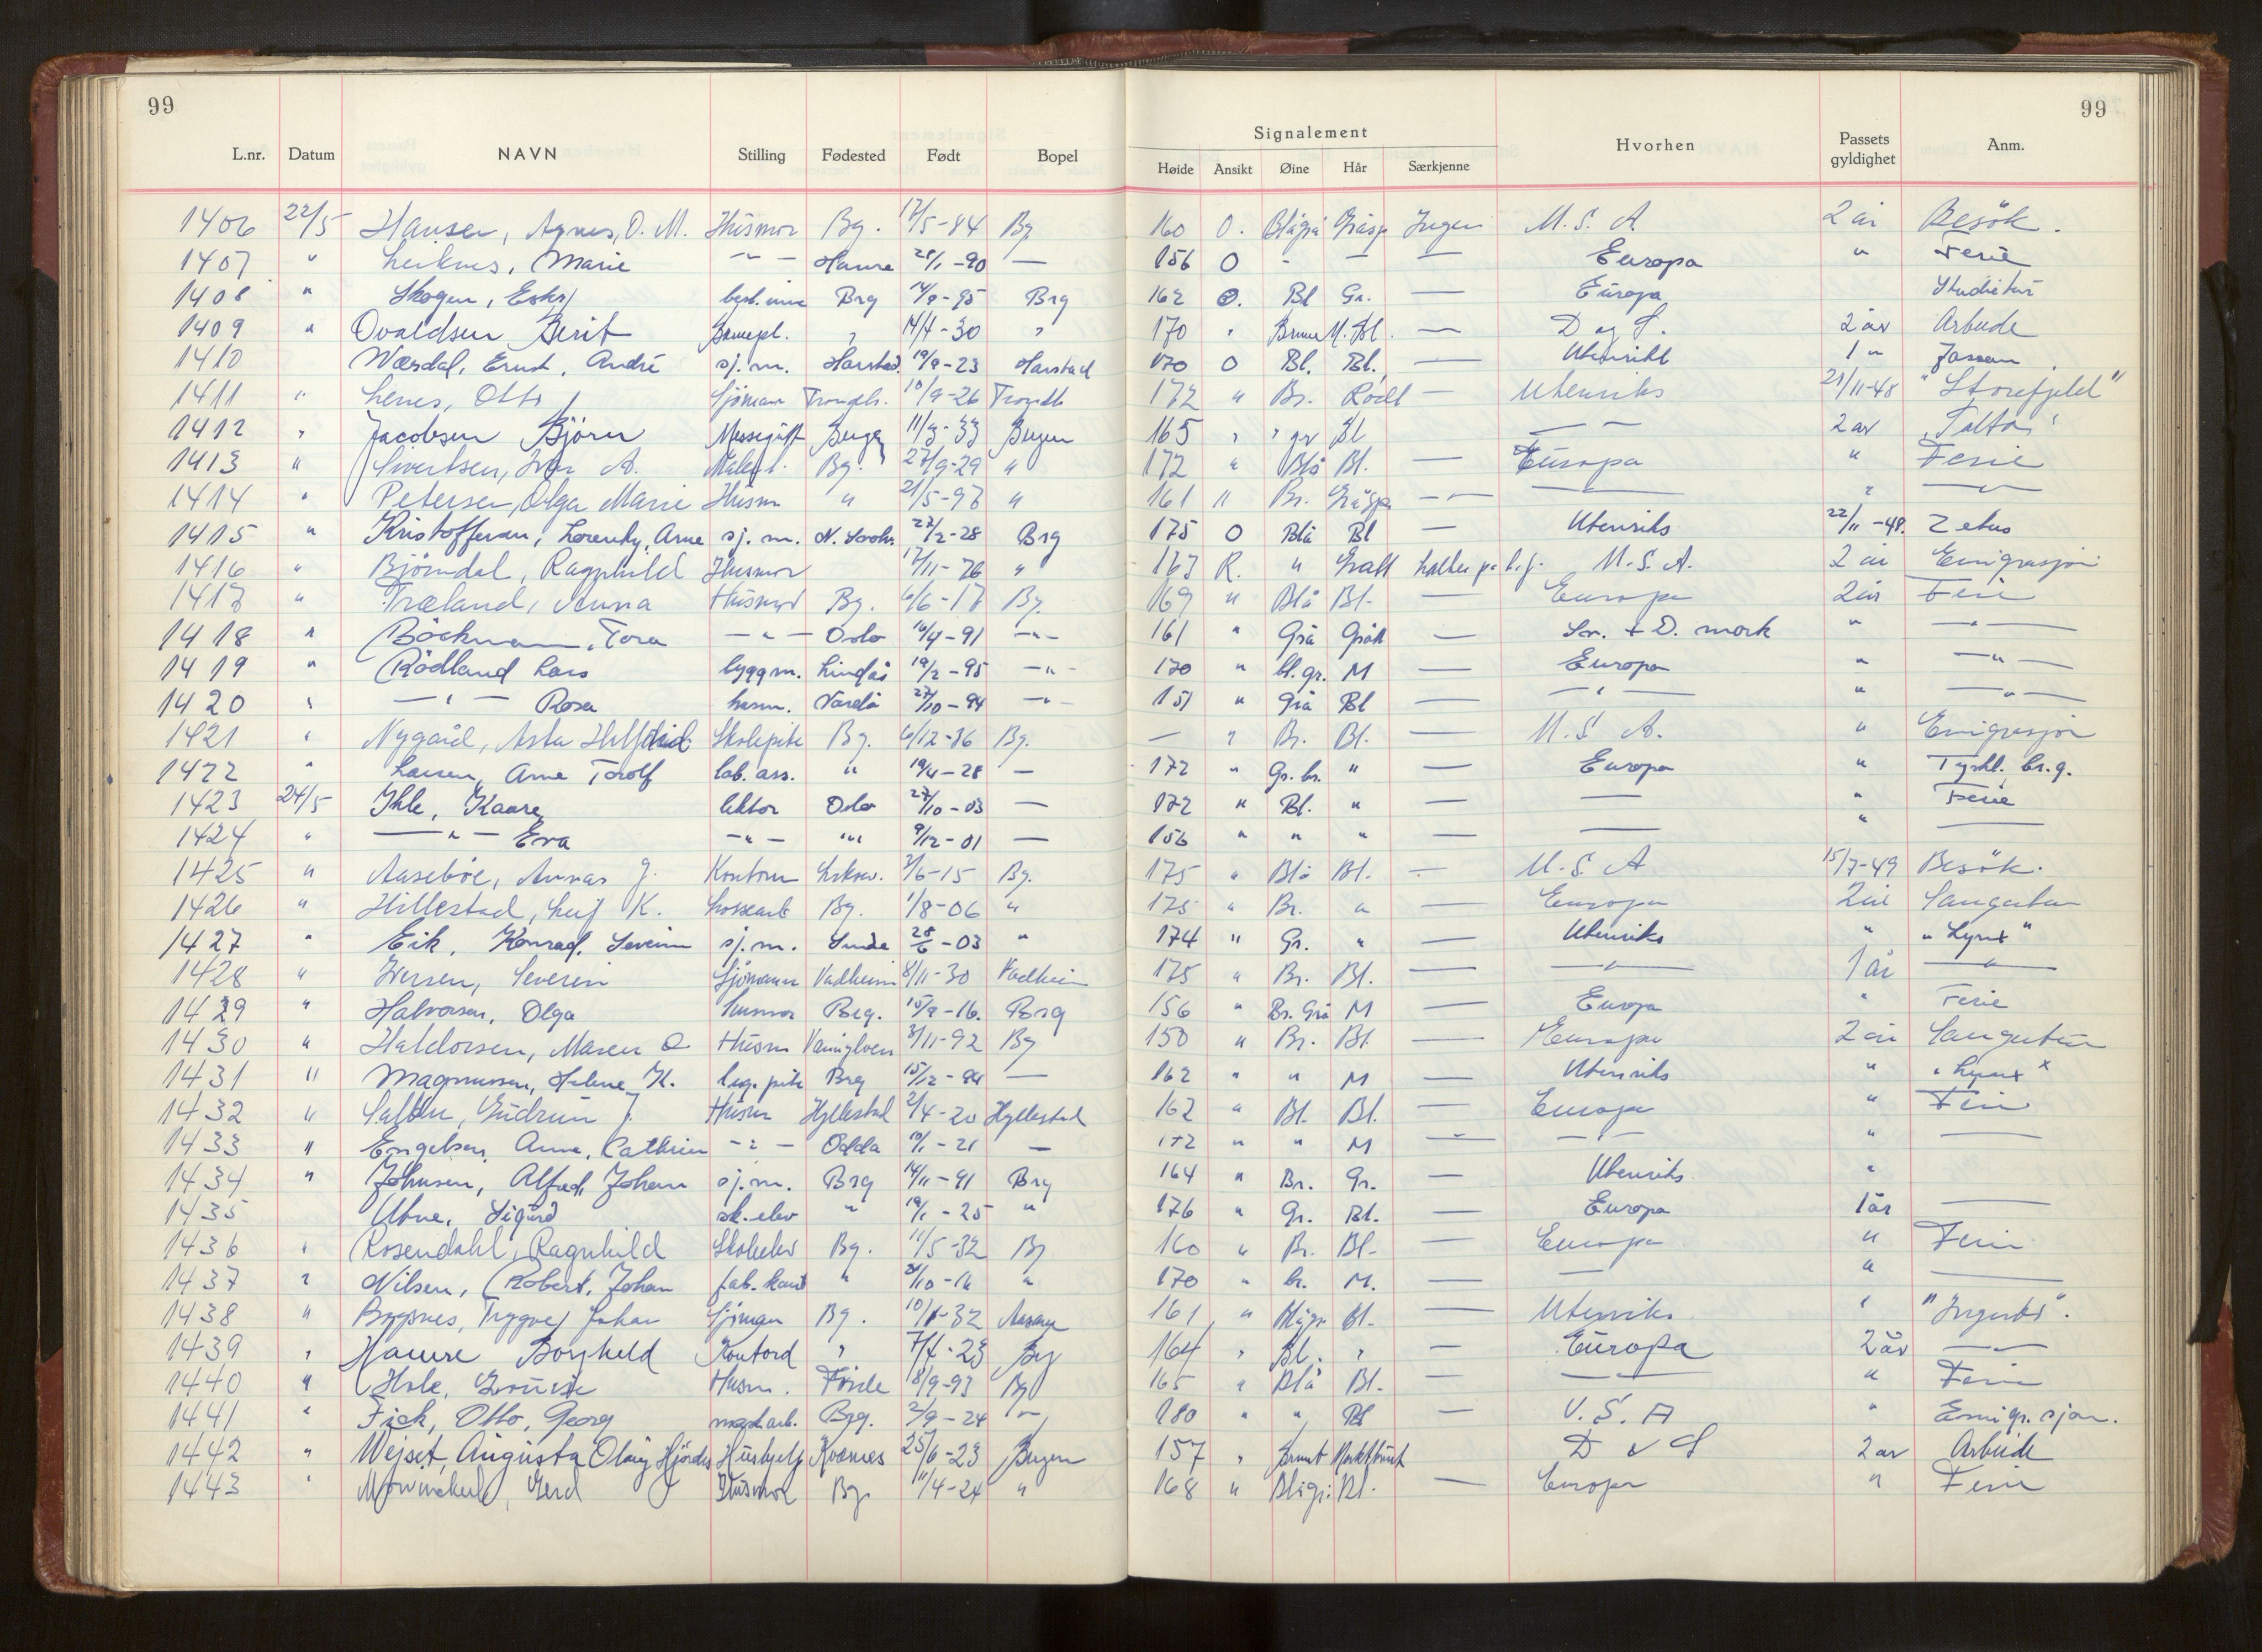 99
99
L.nr. Datum NAVN Stilling Fødested Født Bopel Signalement Høide Ansikt Øine Hår Særkjenne Hvorhen Passets gyldighet Anm.
1406 22/5 Hansen, Agnes, O. M. Husmor Bg. 17/5-84 Bg 160 O. Blågrå Gråspr Ingen U. S. A. 2 år Besök.
1407 " Leiknes, Marie — " — Haure 28/1-90 — 156 O - — — Europa " Ferie
1408 " Skogen, Brg -95 Brg 162 O. Bl Gr. — Europa Studietur
1409 " Ovaldsen Berit Barnepl. " 14/4-30 " 170 " Brune M. Bl. — D og S. 2 år Arbeide
1410 Værdal, Ernst, André sj.m. Harstad 19/9-23 Harstad 170 O Bl. Bl. — Utenriks 1 "
1411 " Lenes, Otto Sjömann Trondh. 10/9-26 Trondh 172 " Br. Rödl — Utenriks 21/11-48 "Storefjeld"
1412 " Jacobsen Björn Messegutt Bergen 11/3-33 Bergen 165 " " gr Bl — — 2 år
1413 " Sivertsen, Ivar A. Bg. 27/9-29 " 172 " Blå Bl. — Europa " Ferie
1414 " Petersen, Olga Marie Husm " 21/5-97 " 161 " Br. Gråspr — — " —
1415 " Kristoffersen, Arne sj.m. 27/2-28 Brg 175 O Blå Bl — Utenriks 22/11-48. Zetus
1416 " Björndal, Ragnhild Husmor 17/11-76 " 163 R. " Grått U.S.A. 2 år Emigrasjon
1417 " Træland, Anna Husmor Bg. 6/6-17 Bg. 169 " Blå Bl. — Europa 2 år Ferie
1418 " Böckman, Tora — " — Oslo 16/4-91 — " — 161 " Grå Grått — Sv. + D. mark " — " —
1419 " Rödland Lars byggm. Lindås 19/2-95 — " — 170 " bl.gr. M — Europa " — " —
1420 " — " — Rosa husm. Vardö 27/10-94 — " — 151 " Grå Bl — — " — " — " —
1421 " Nygård, Asta Skolepike Bg. 6/12-36 Bg. — " Br. Bl. — U. S. A. " Emigrasjon
1422 " Larsen, Arne Torolf lab. ass. " 19/4-28 — 172 " Gr. br. " — Europa " Tyskl. br.g.
1423 24/5 Ihle, Kaare lektor Oslo 27/10-03 — 172 " Bl. " — — " Ferie
1424 " — " — Eva — " — " 9/12-01 — 156 " " " — — " —
1425 " Aaseböe, Annar J. Kontorm 3/6-15 Bg. 175 " Blå Bl. — U. S. A 15/7-49 Besök.
1426 " Hillestad, Leif K. Lossearb Bg. 1/8-06 " 175 " Br. " — Europa 2 år Sangertur
1427 " Eik, Konrad, Severin sj.m. 28/6-03 " 174 " Gr. " — Utenriks " "Lynx"
1428 " Iversen, Severin Sjömann Vadheim 8/11-30 Vadheim 175 " Br. Bl. — — " — 1 år — " —
1429 " Halvorsen, Olga husmor Brg. 15/8-16. Brg 156 " Br. Grå M — Europa " Ferie
1430 " Haldorsen, Maren O Husm 3/11-92 Bg 150 " Br. Bl. — Europa 2 år Sangertur
1431 " Magnussen, Helene K. Brg 15/12-94 — 162 " " M — Utenriks " "Lynx"
1432 " Gudrun J. Husm Hyllestad 2/4-20 Hyllestad 162 " Bl. Bl. — Europa " Ferie
1433 " Engelsen, Anna, Cathrin — " — Odda 19/1-21 — 172 " " M — — " — " —
1434 " Johnsen, Alfred, Johan sj.m. Brg 14/11-91 Brg 164 " Br. Gr. — Utenriks "
1435 Utne, Sigurd sk.elev " 19/1-25 " 176 " Gr. Bl. — Europa 1 år —
1436 " Rosendahl, Ragnhild Skoleelev Bg. 11/5-32 Bg 160 " Br. Bl. — Europa " Ferie
1437 " Nilsen, Robert, Johan " " 170 " br. M. — — " —
1438 " Trygve, Johan Sjömann Bg. -32 161 " Blågr. Bl. — Utenriks "
1439 " Haure Borghild Kontord " 7/4-23 Bg 164 " Bl. " — Europa 2 år —
1440 " Hole, Husm. Förde 8/9-93 Bg 165 " Blå Bl. — — " Ferie
1441 " Fick, Otto, Georg Brg. 2/9-24 — " — 180 " " Bl — U. S. A " Emigr.sjon.
1442 " Wejset, Augusta Olaug Hjördis Hushjelp Kvernes 25/6-23 Bergen 157 " Brunt Mörktbrunt D & S 2 år Arbeide
1443 " Mowinckel, Gerd Husmor Bg. 11/4-24 " 168 " Blågr. Bl. — Europa " Ferie